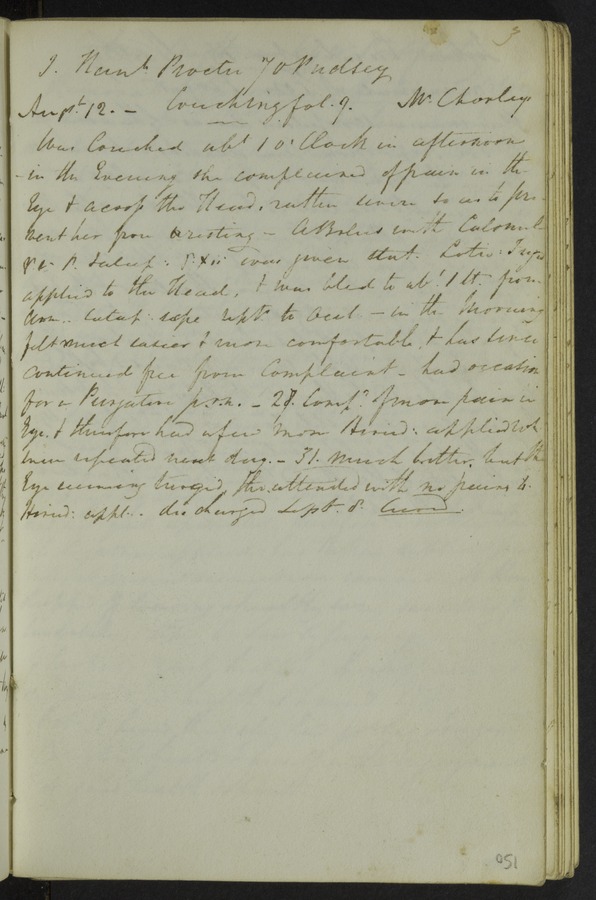 3
J. Hant. Procter 70 Pudsey
Augt. 12. – Couching fol. 9. Mr. Chorley
Was Couched abt. 1 o'Clock in afternoon
– in the Evening she complained of pain in the
Eye & across the Head, rather severe so as to pre-
vent her from resting – A Bolus with Calomel
& P. Jalap: was given stat. Lotio: Frig
applied to the Head, & was bled to abt. 1 lt. from
Arm. – in the Morning
felt much easier & more comfortable, & has since
continued free from Complaint – had occasion
for a Purgative p.r.n. – 28. Compd. of more pain in
Eye. & therefore had a few more Hirud: applied wh.
were repeated next day. – 31. Much better, but the
Eye seeming turgid, tho. attended with no pain
Hirud: appl. discharged Sept. 8. Cured.
150